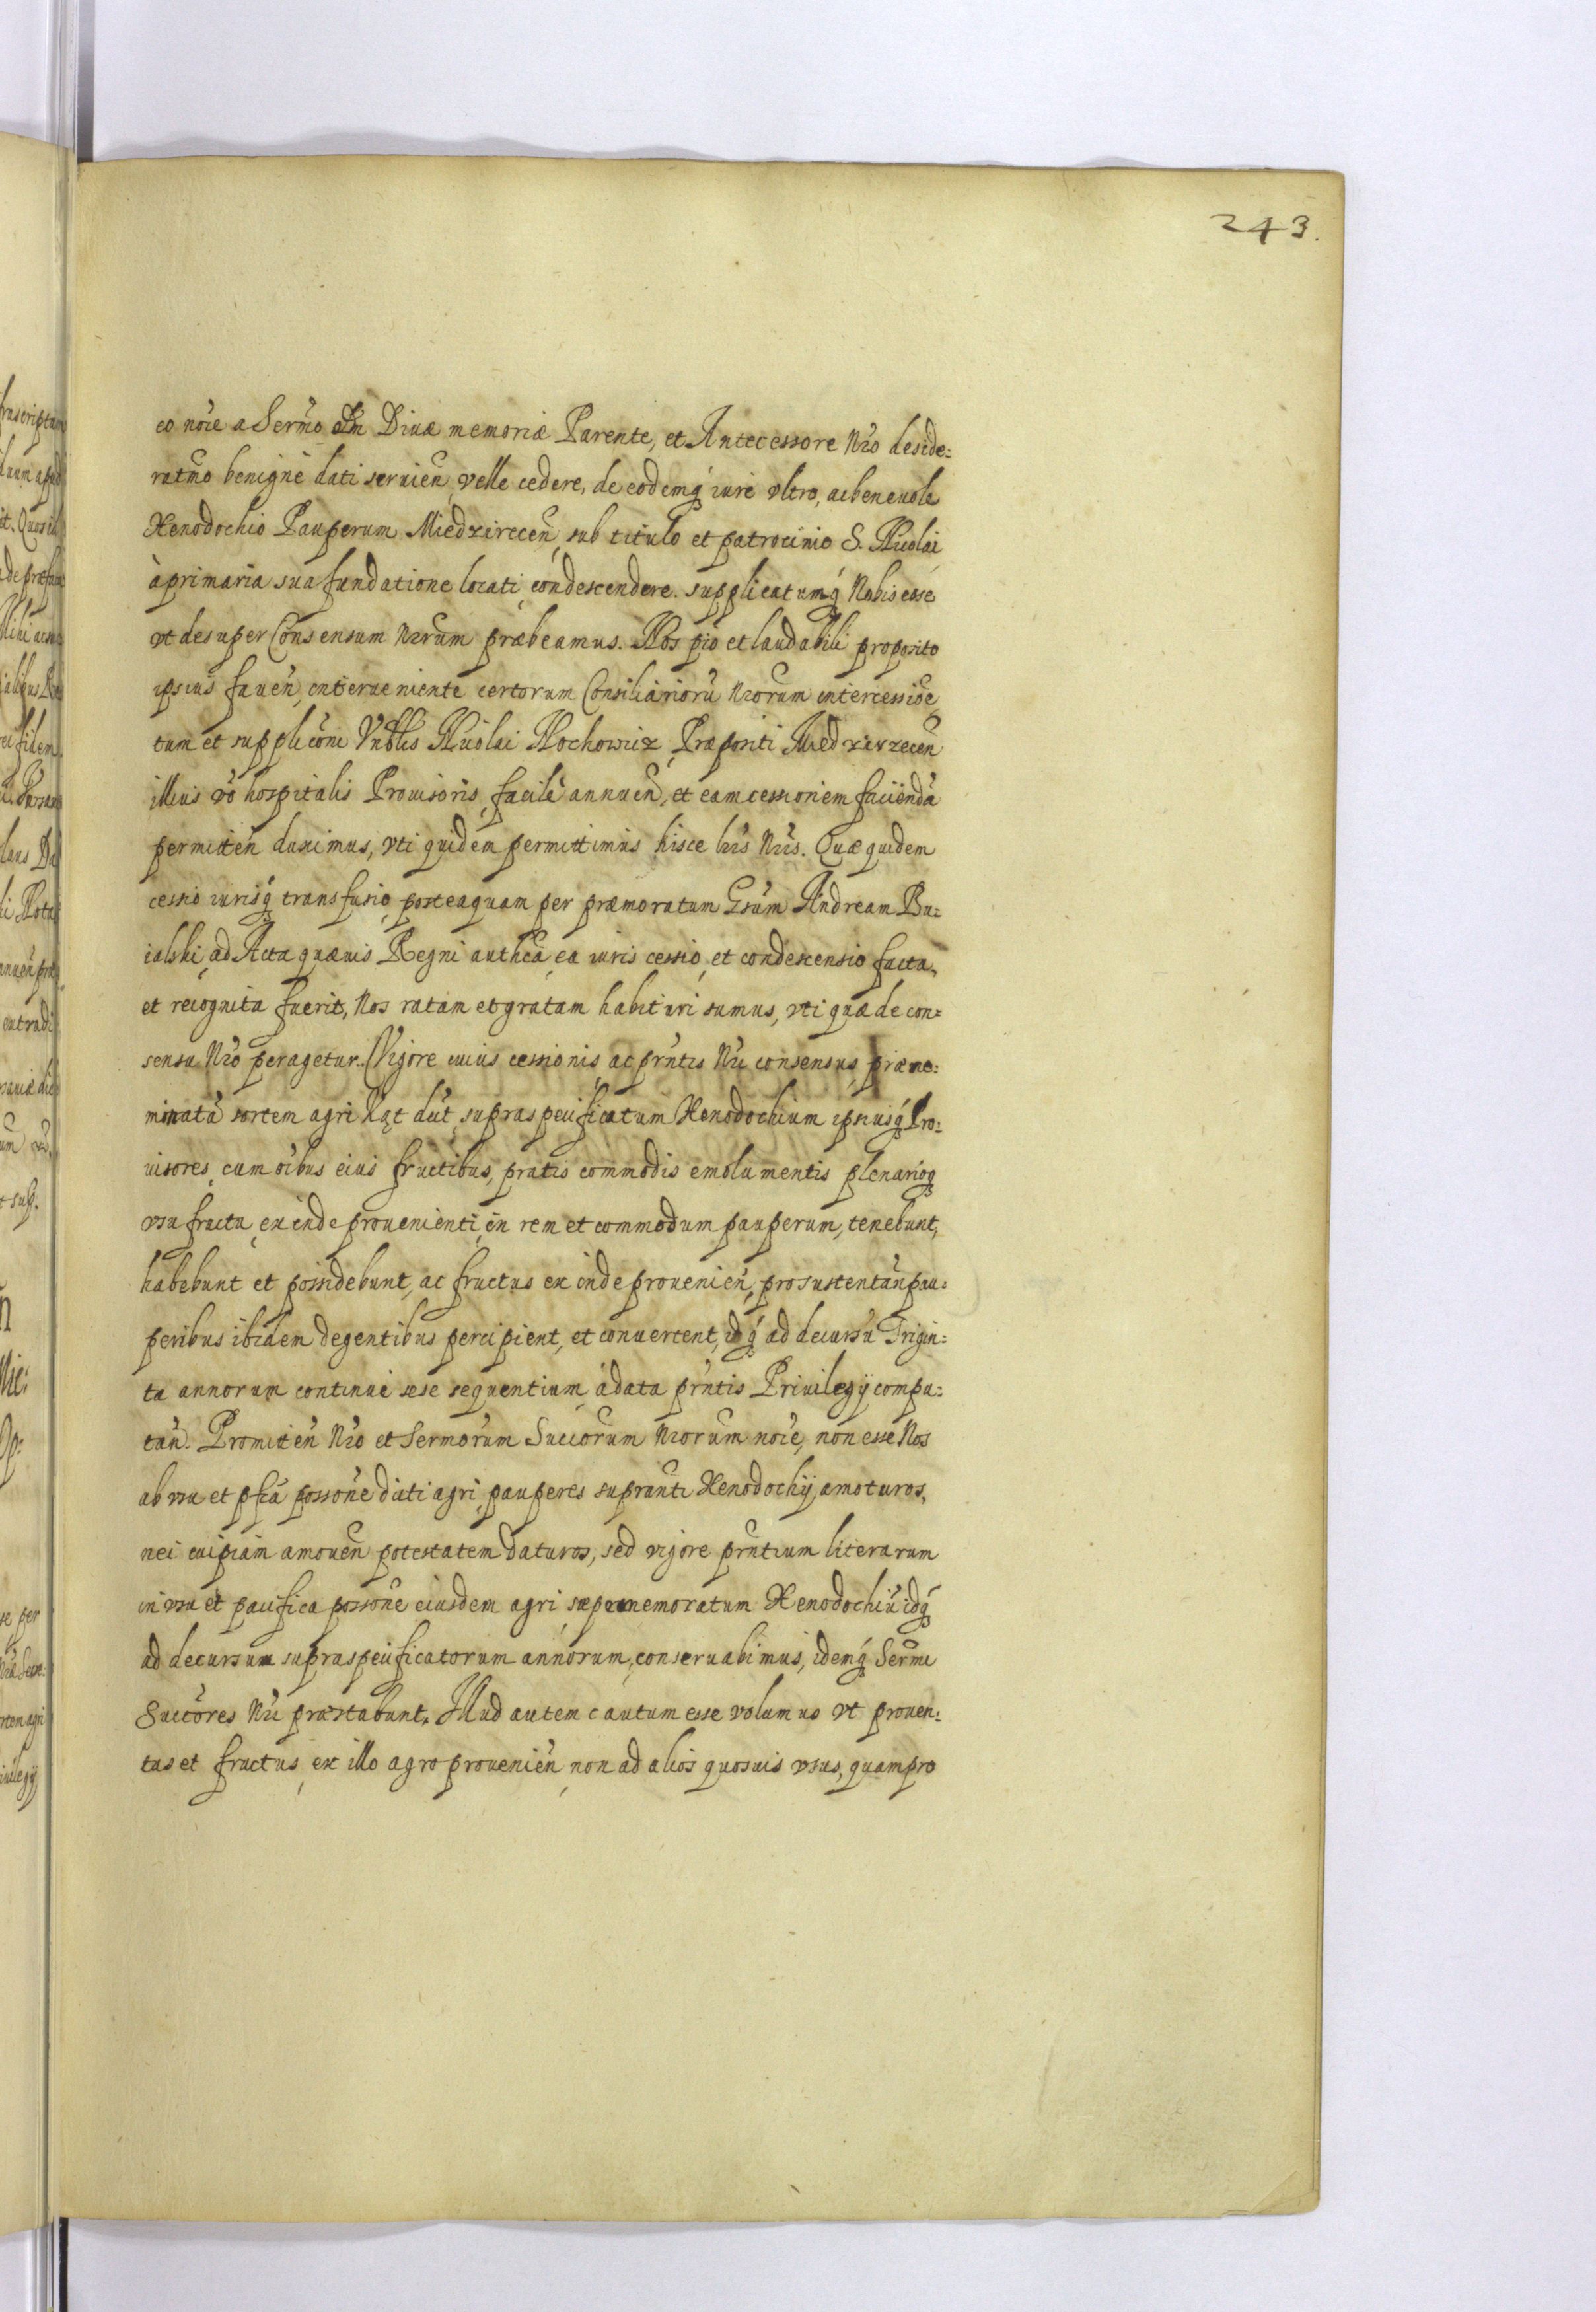 243.
eo noīe a Sermo olim Diuæ memoriæ Parente, et Antecessore Nro deside:
ratmo benignè dati seruien, velle cedere, de eodemq́ iure vltro, ac beneuole
Xenodochio Pauperum Miedzirecen, sub titulo et patrocinio S. Nicolai
à primaria sua fundatione locati, condescendere. supplicatumq́ Nobis esse
vt desuper Consensum Nrum præbeamus. Nos pio et laudabili proposito
ipsius fauen, interueniente certorum Consiliarioru Nrorum intercessioe,
tum et supplicõne Vnblis Nicolai Mochowicz, Præpositi Miedzirzecen
illius vo hospitalis Prouisoris, facilè annuen, et eam cessionem faciendā
permitten duximus, vti quidem permittimus hisce lris Nris. Quæ quidem
cessio iurisq́ transfusio, posteaquam per præmoratum Gsum Andream Bu:
ialski, ad Acta quæuis Regni authca, ea iuris cessio, et condescensio facta,
et recognita fuerit, Nos ratam et gratam habituri sumus, vti quæ de con:
sensu Nro peragetur. Vigore cuius cessionis, ac prntis Nri consensus, præno:
minatā sortem agri kąt dict, supraspecificatum Xenodochium ipsiusq́ Pro:
uisores, cum oibus eius fructibus, pratis commodis emolumentis plenarioq
vsu fructu, exinde prouenienti, in rem et commodum pauperum, tenebunt,
habebunt et possidebunt, ac fructus exinde prouenien, pro sustentan pau:
peribus ibidem degentibus percipient, et conuertent, idq́ ad decursū Trigin:
ta annorum continuè sese sequentium, à data prntis Priuilegij compu:
tan. Promitten Nro et Sermorum Succorum Nrorum noīe, non esse Nos
ab vsu et pfca possone dicti agri, pauperes supranti Xenodochij, amoturos,
nec cuipiam amouen potestatem daturos, sed vigore prntium literarum
in vsu et pacifica possone eiusdem agri, sæpememoratum Xenodochiū idq́
ad decursum supraspecificatorum annorum, conseruabimus, idemq́ Sermi
Succores Nri præstabunt. Illud autem cautum esse volumus vt prouen:
tus et fructus, ex illo agro prouenien, non ad alios quosuis vsus, quam pro